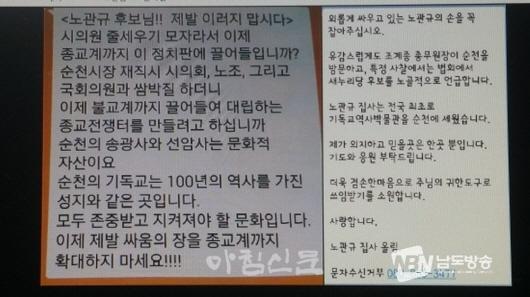 <노관규 후보님!! 제발 이러지 맙시다>
시의원 줄세우기 모자라서 이제
종교계까지 이 정치판에 끌어들입니까?
순천시장 재직시 시의회, 노조, 그리고
국회의원과 쌈박질 하더니
이제 불교계까지 끌어들여 대립하는
종교전쟁터를 만들려고 하십니까
순천의 송광사와 선암사는 문화적
자산이요
순천의 기독교는 100년의 역사를 가진
성지와 같은 곳입니다.
모두 존중받고 지켜져야 할 문화입니다.
이제 제발 싸움의 장을 종교계까지
확대하지 마세요!!!!
아침신문
외롭게 싸우고 있는 노관규의 손을 꼭
잡아주십시오.
유감스럽게도 조계종 총무원장이 순천을
방문하고, 특정 사찰에서는 법회에서
새누리당 후보를 노골적으로 언급합니다.
노관규 집사는 전국 최초로
기독교역사박물관을 순천에 세웠습니다.
제가 의지하고 믿을곳은 한곳 뿐입니다.
기도와 응원 부탁드립니다.
더욱 겸손한마음으로 주님의 귀한도구로
쓰임받기를 소원합니다.
사랑합니다.
노관규 집사 올림
문자수신거부
NBN 남도방송